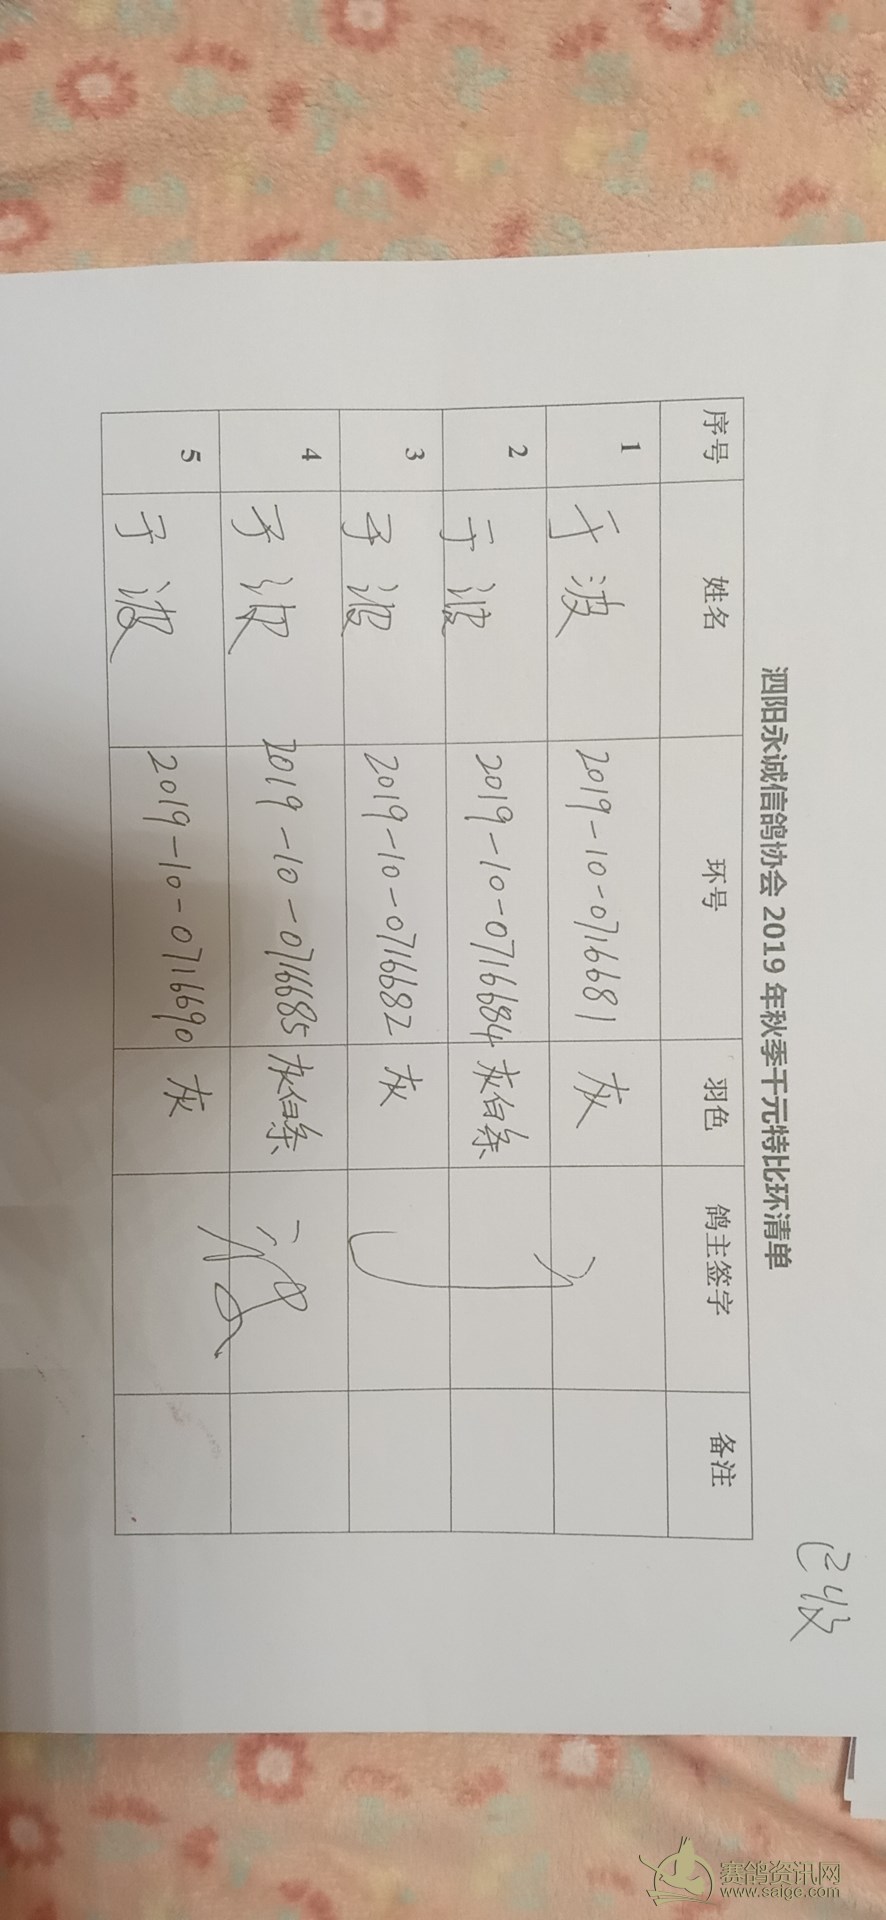 已收
泗阳永诚信鸽协会 2019 年秋季千元特比环清单
序号 姓名 环号 羽色 鸽主签字 备注
1 于波 2019-10-0716681 灰
2 于波 2019-10-0716684 灰白条
3 于波 2019-10-0716682 灰
4 于波 2019-10-0716685 灰白条
5 于波 2019-10-0716690 灰
赛鸽资讯网
www.saigc.com